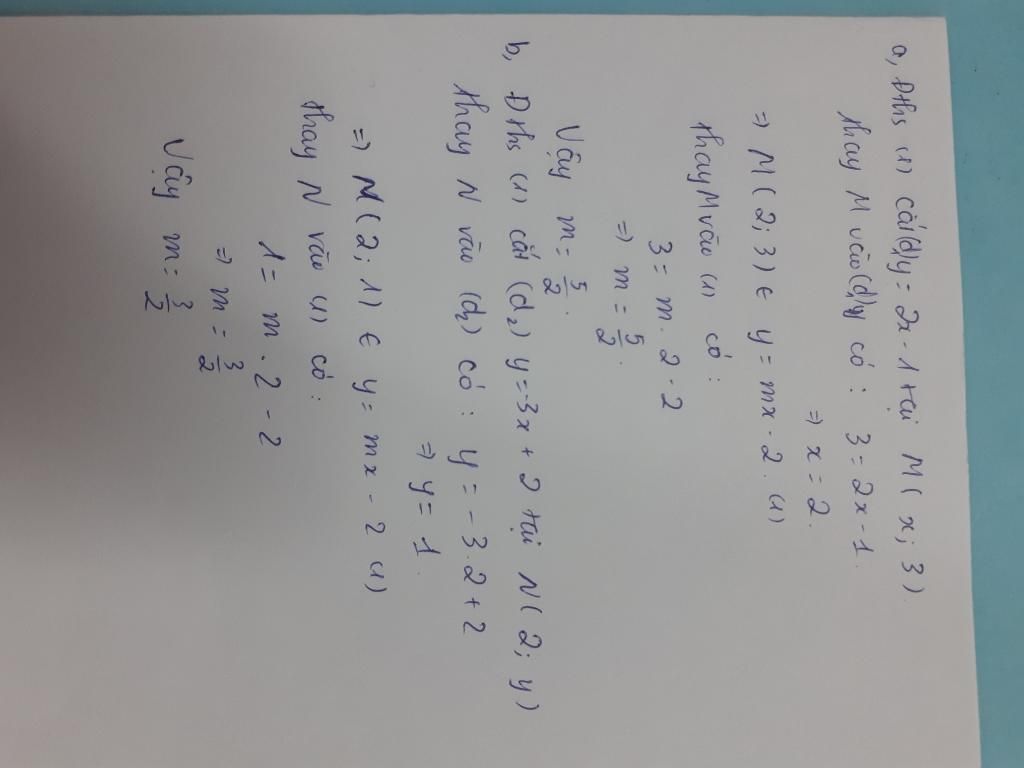 a, Đths (1) cắt (d) y = 2x - 1 tại M( x; 3).
thay M vào (d) có : 3 = 2x - 1.
=> x = 2.
=> M( 2; 3) ∈ y = mx - 2. (1)
thay M vào (1) có :
3 = m . 2 - 2
=> m = 5/2.
Vậy m = 5/2.
b, Đths (1) cắt (d2) y = -3x + 2 tại N( 2; y)
thay N vào (d2) có : y = - 3. 2 + 2
=> y = 1.
=> N( 2; 1) ∈ y = mx - 2 (1)
thay N vào (1) có :
1 = m . 2 - 2
=> m = 3/2
Vậy m = 3/2